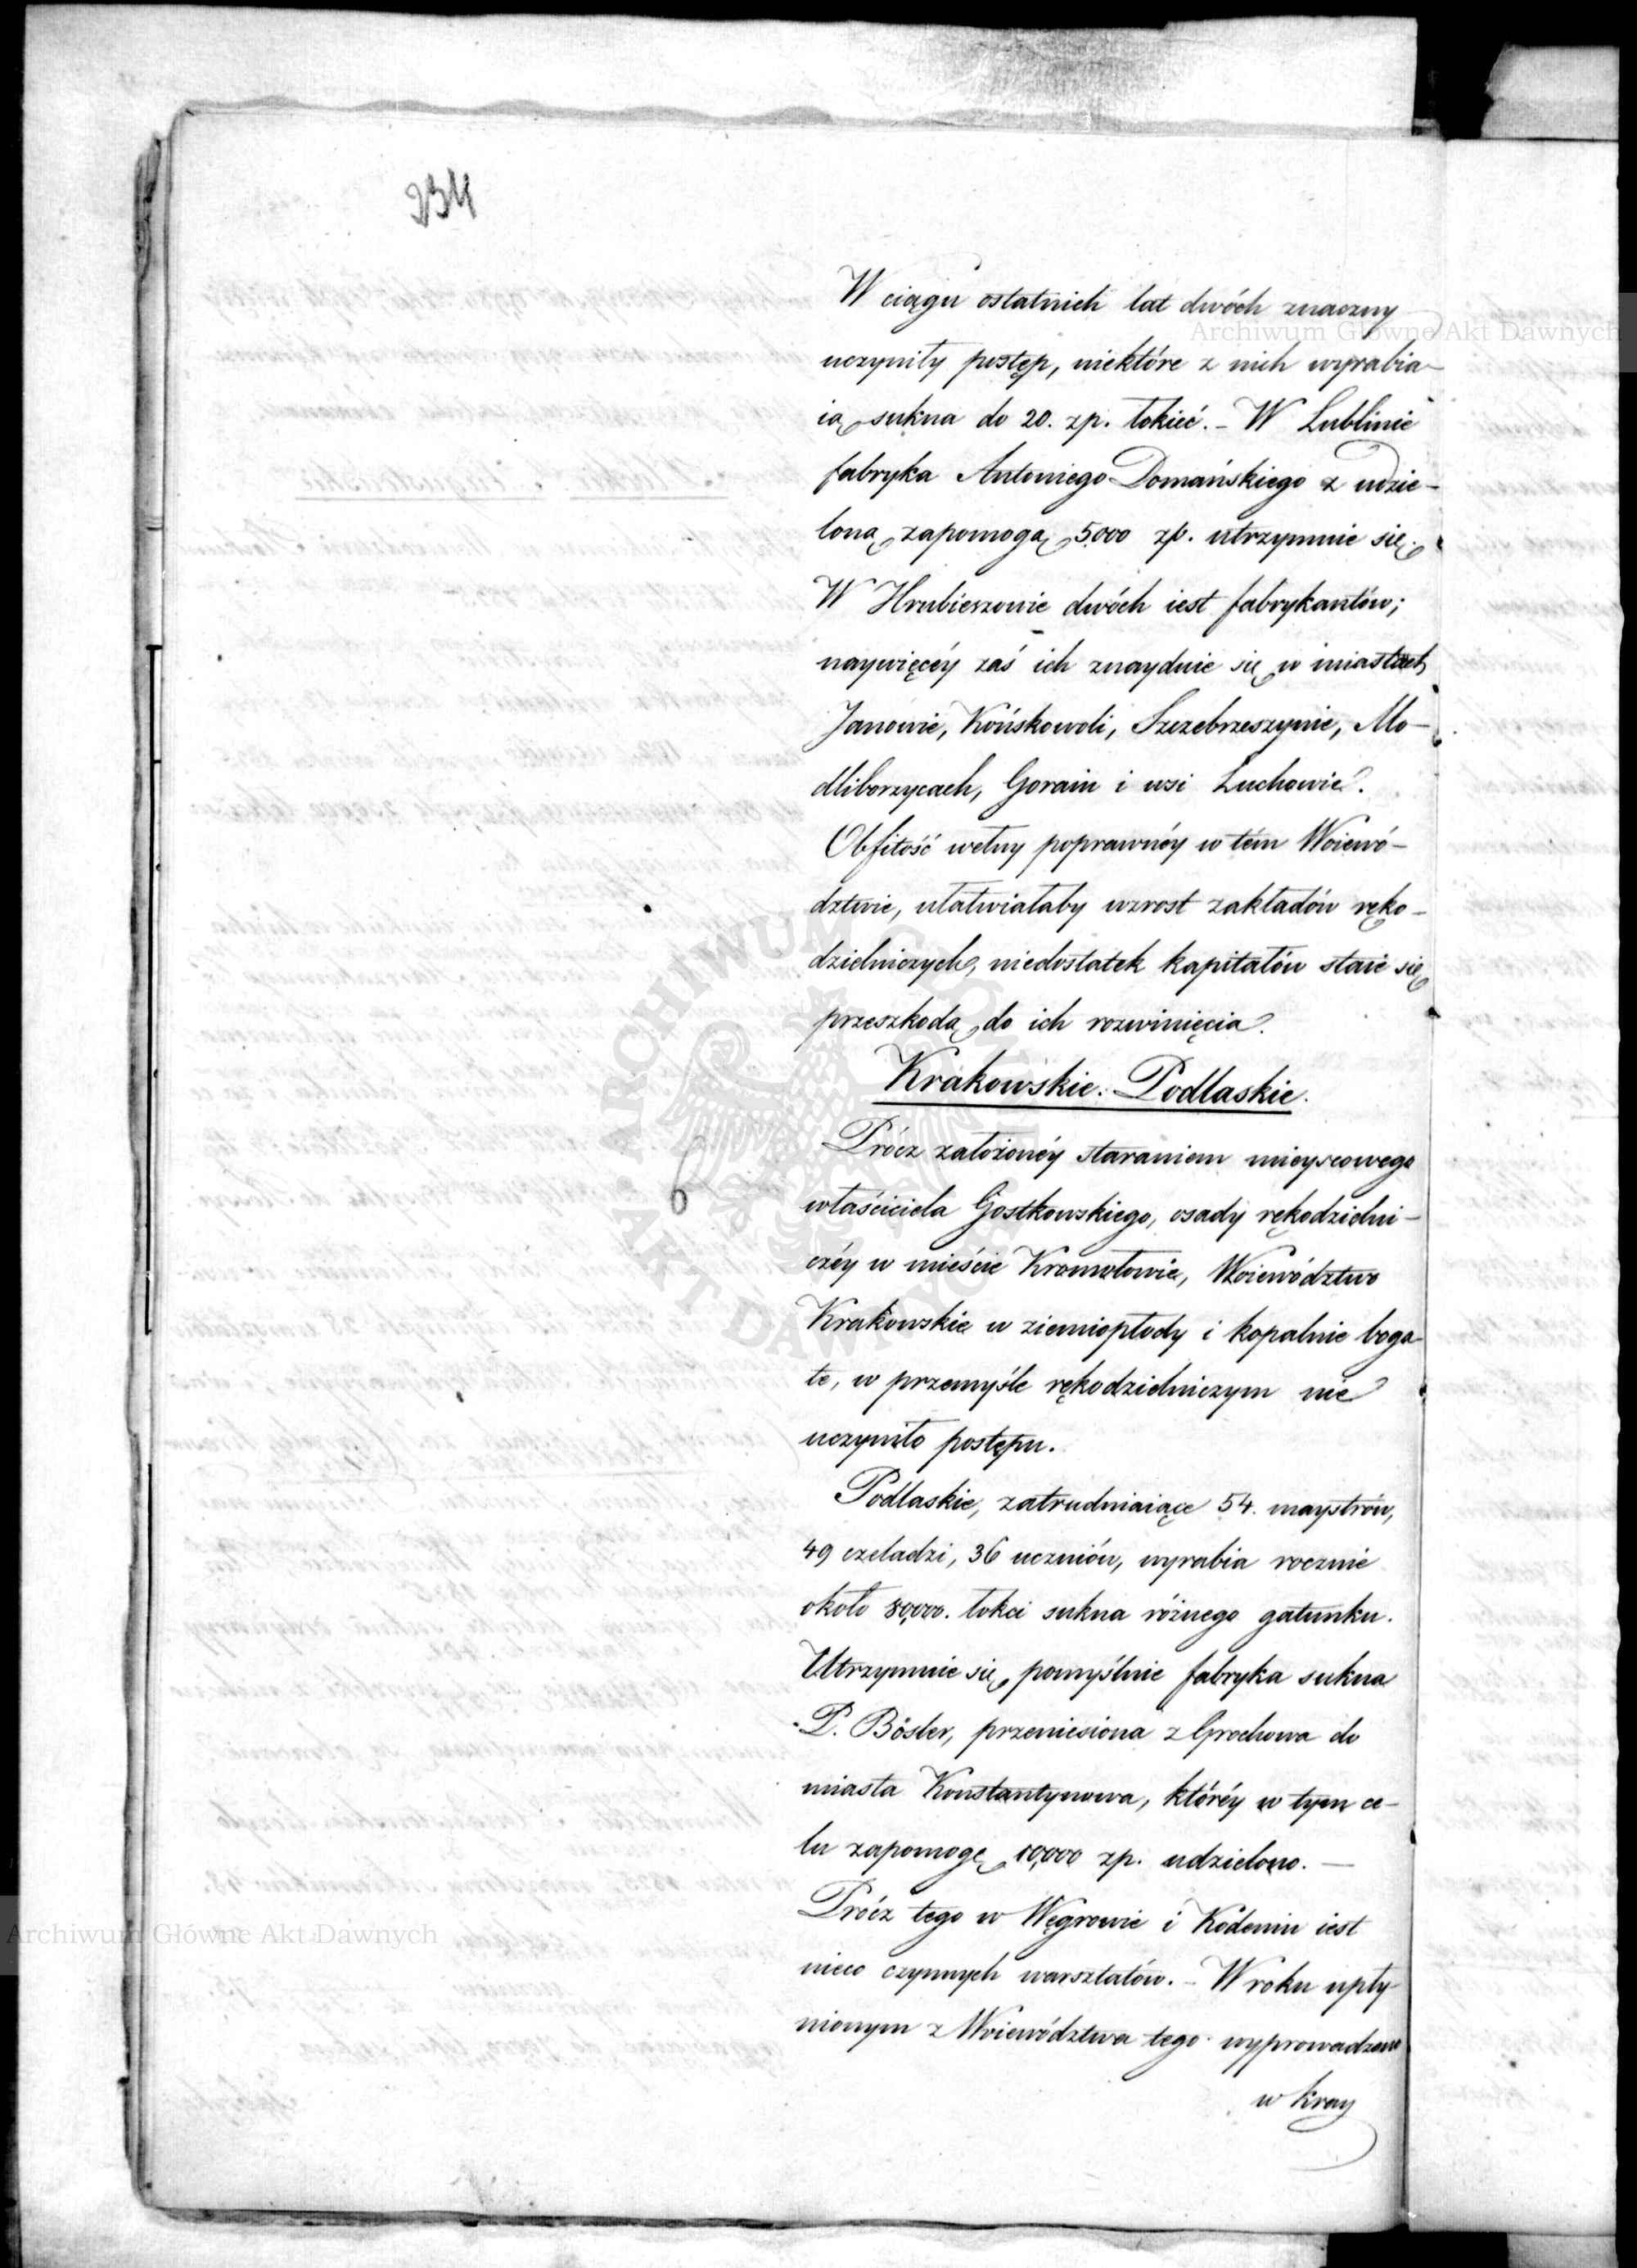 234
W ciągu ostatnich lat dwóch znaczny
uczyniły postęp, niektóre z nich wyrabia-
ią sukna do 20. zp. łokieć. – W Lublinie
fabryka Antoniego Domańskiego z udzie-
loną zapomogą 5000 zp. utrzymuie się.
W Hrubieszowie dwóch iest fabrykantów;
naywięcéy zaś ich znayduie się w miastach
Janowie, Końskowoli, Szczebrzeszynie, Mo-
dliborzycach, Goraiu i wsi Luchowie.
Obfitość wełny poprawnéy w tém Woiewó-
dztwie, ułatwiałaby wzrost zakładów ręko-
dzielniczych, niedostatek kapitałów staie się
przeszkodą do ich rozwinięcia.
Krakowskie: Podlaskie.
Prócz założonéy staraniem mieyscowego
właściciela Gostkowskiego, osady rękodzielni-
czéy w mieście Kromołowie, Woiewództwo
Krakowskie w ziemiopłody i kopalnie boga-
te, w przemyśle rękodzielniczym nie
uczyniło postępu.
Podlaskie, zatrudniaiące 54. maystrów,
49 czeladzi, 36 uczniów, wyrabia rocznie
około 80,000. łokci sukna różnego gatunku.
Utrzymuie się pomyślnie fabryka sukna
P. Bösler, przeniesiona z Grochowa do
miasta Konstantynowa, któréy w tym ce-
lu zapomogę 10,000 zp. udzielono. —
Prócz tego w Węgrowie i Kodeniu iest
nieco czynnych warsztatów. – W roku upły-
nionym z Woiewództwa tego wyprowadzono
w kray
Archiwum Główne Akt Dawnych
Archiwum Główne Akt Dawnych
ARCHIWUM GŁÓWNE
AKT DAWNYCH